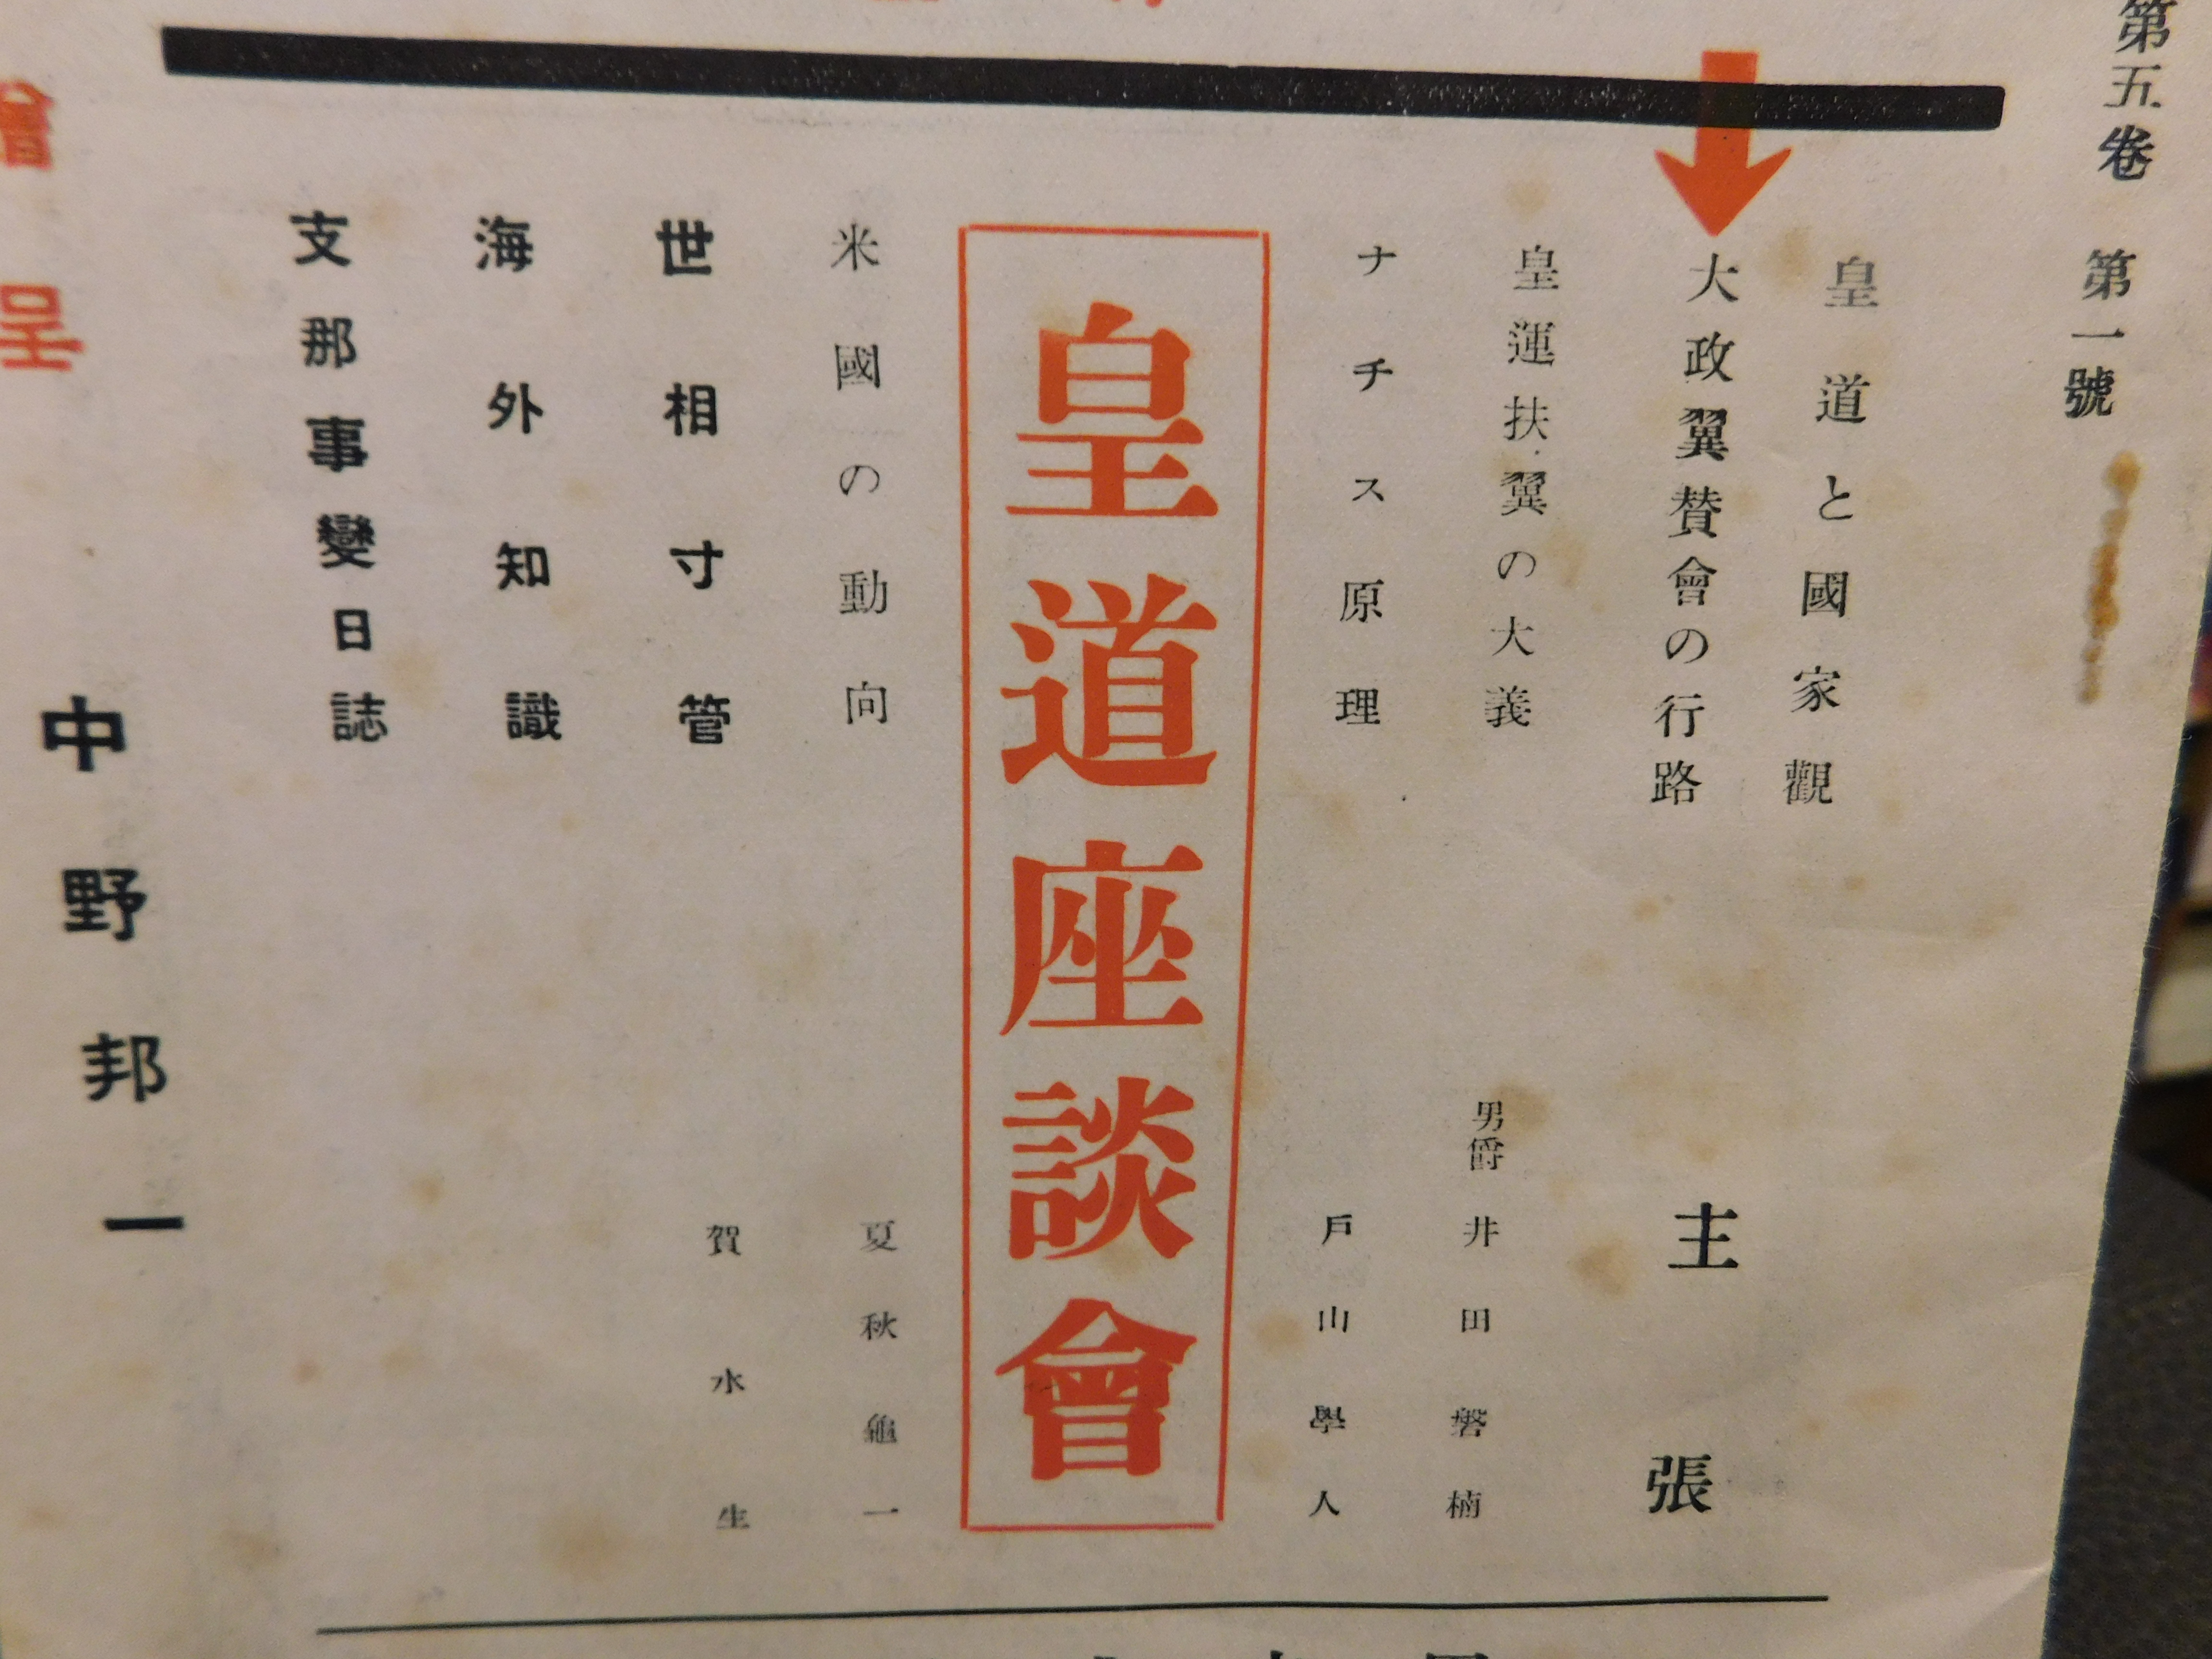 第五卷 第一號
皇道と國家觀
大政翼賛會の行路 主張
皇運扶翼の大義 男爵 井田磐楠
ナチス原理 戶山學人
皇道座談會
米國の動向 夏秋龜一
世相寸管 賀水生
海外知識
支那事變日誌
會
中野邦一